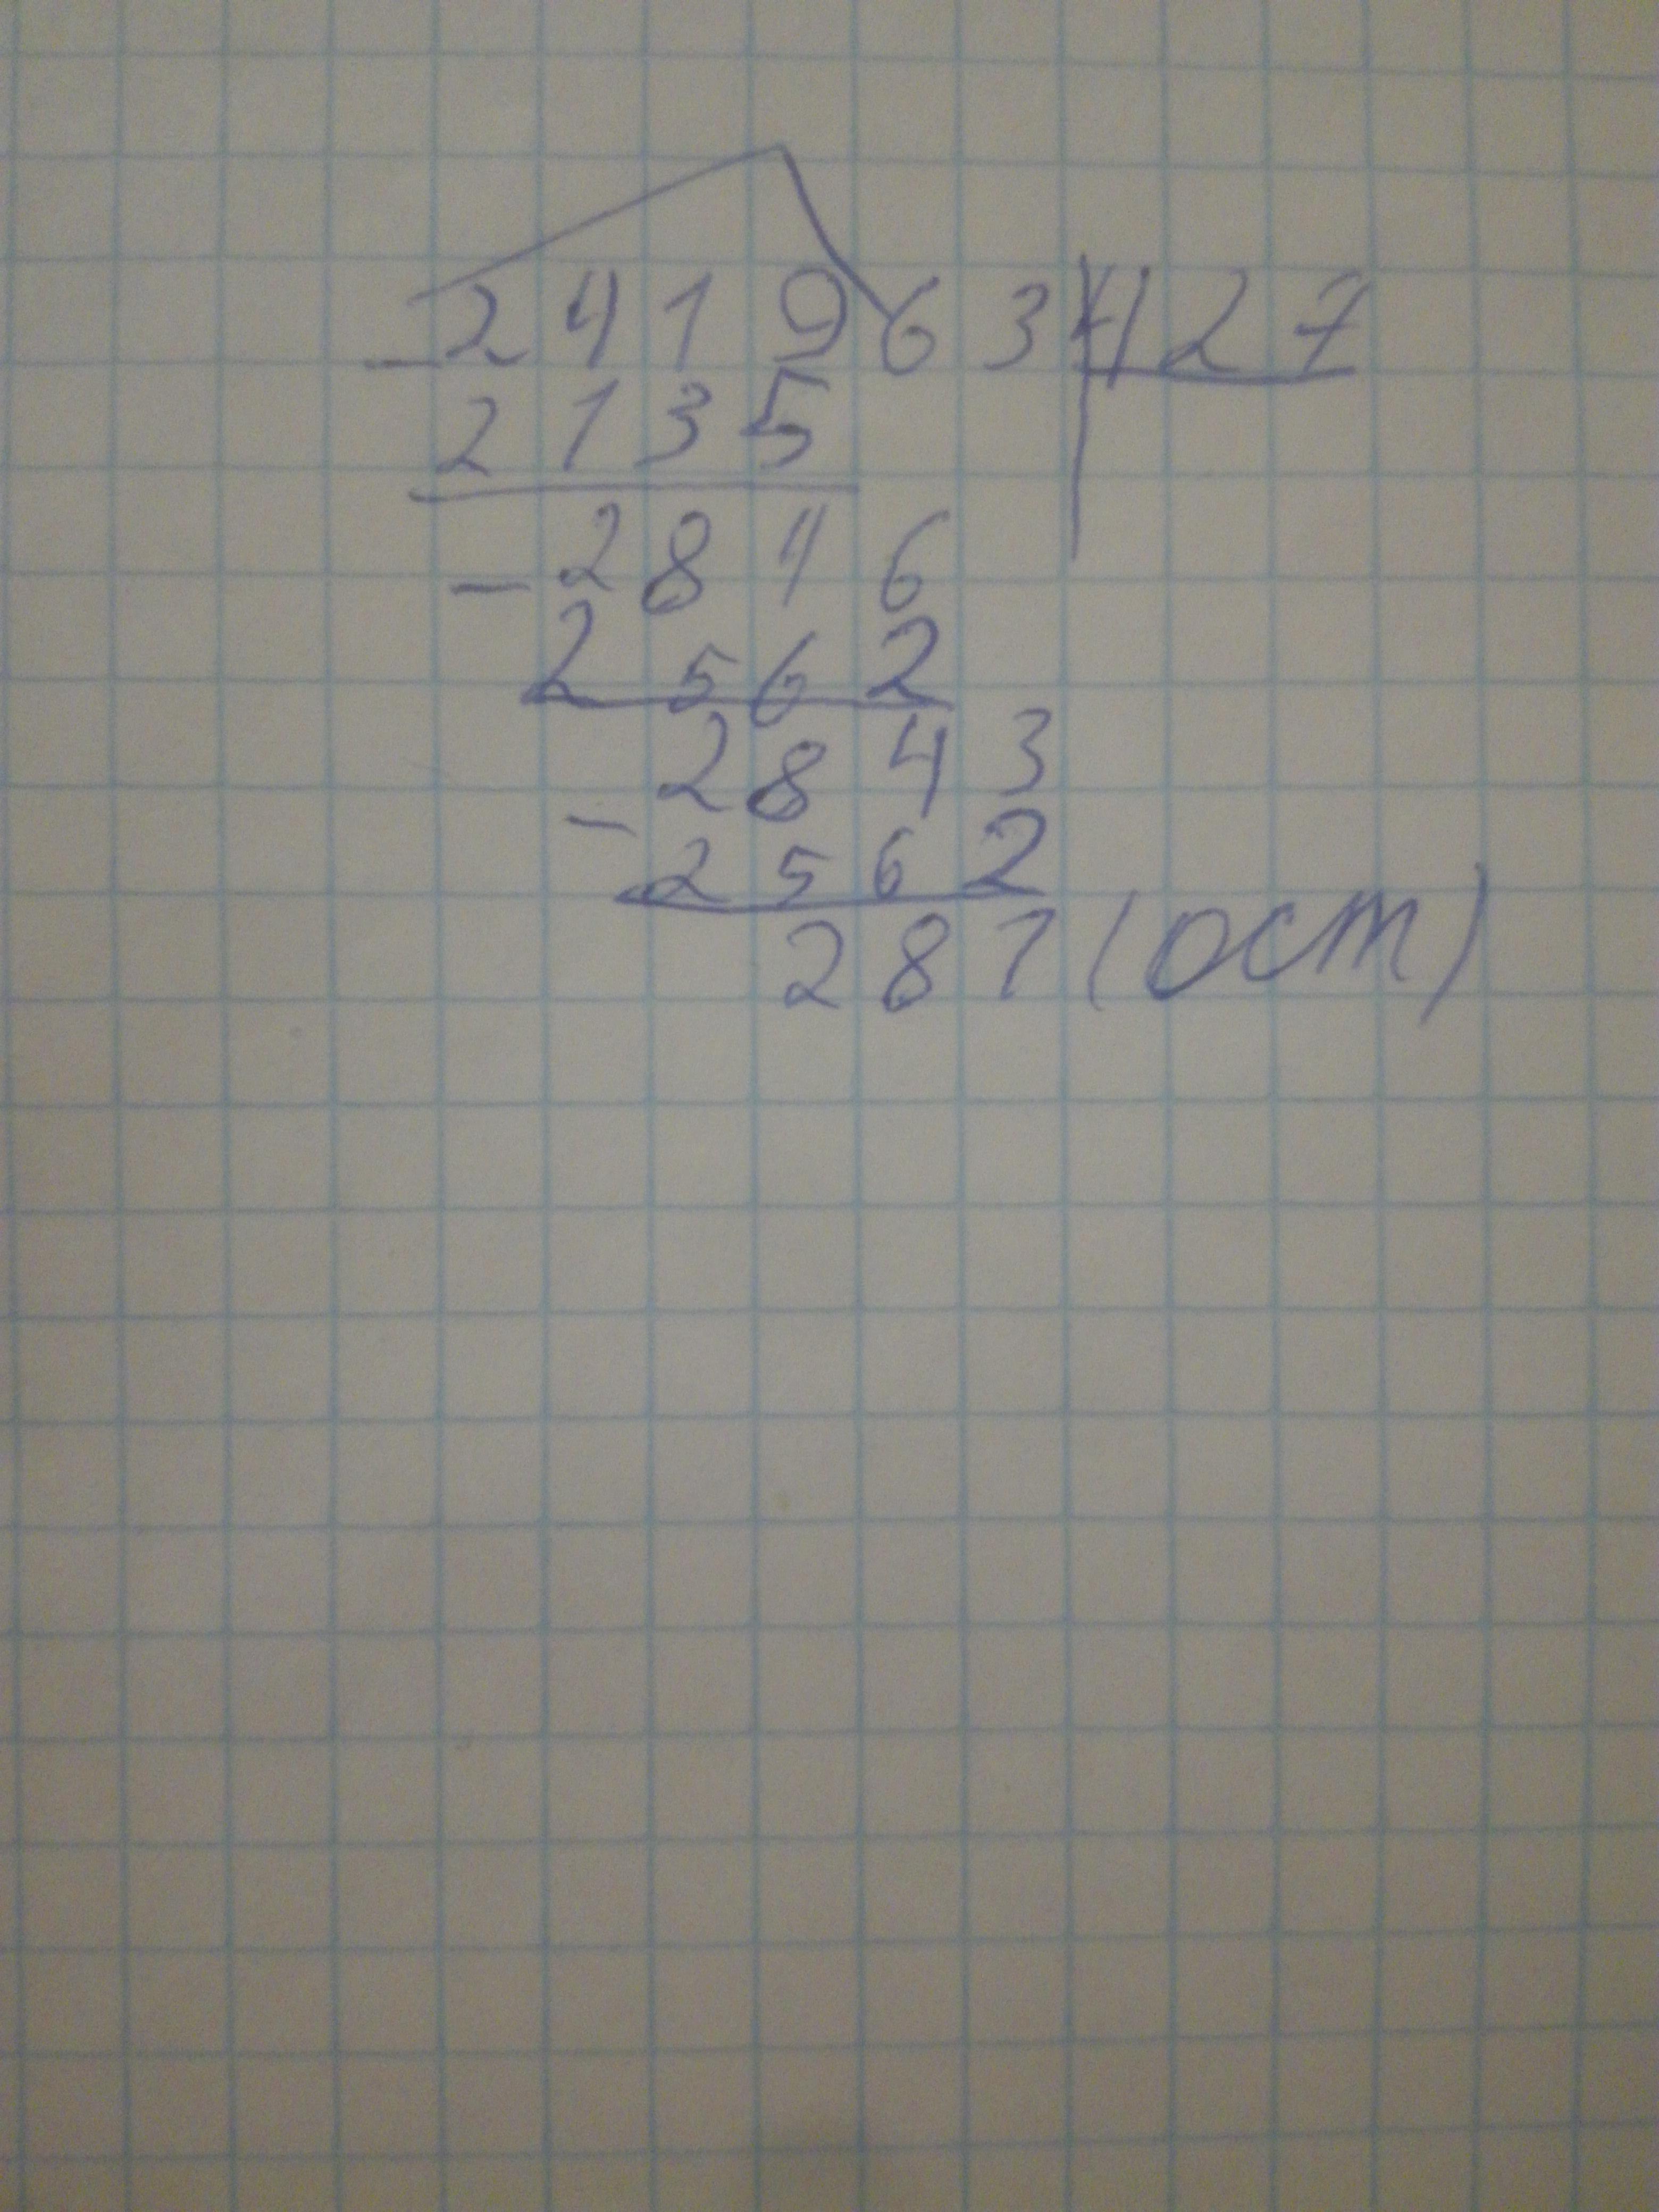 - 241963 | 427
2135
- 2846
2562
- 2843
2562
281 (ост)